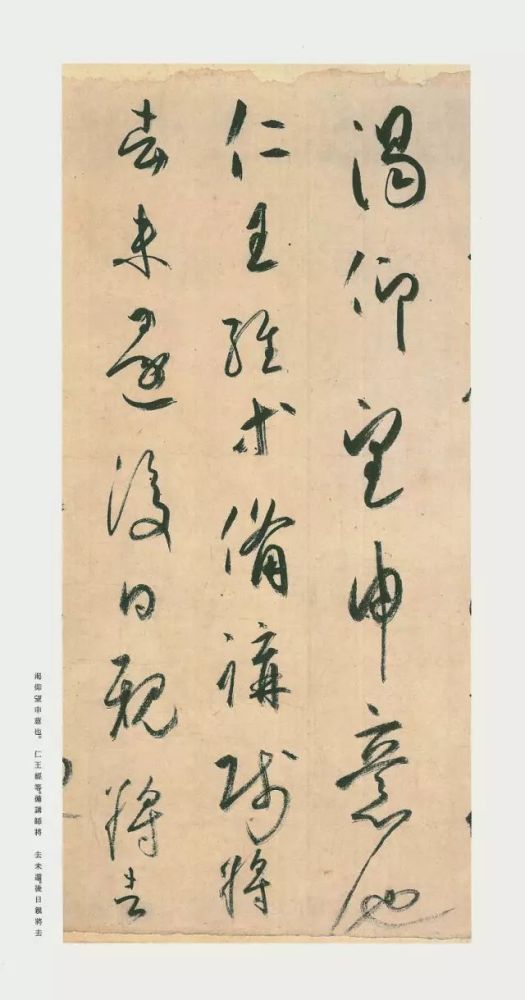 渇仰望申意也
仁王経等備講師将
去未還後日親将去
渇仰望申意也。仁王經等、備講師將　去未還、後日親將去